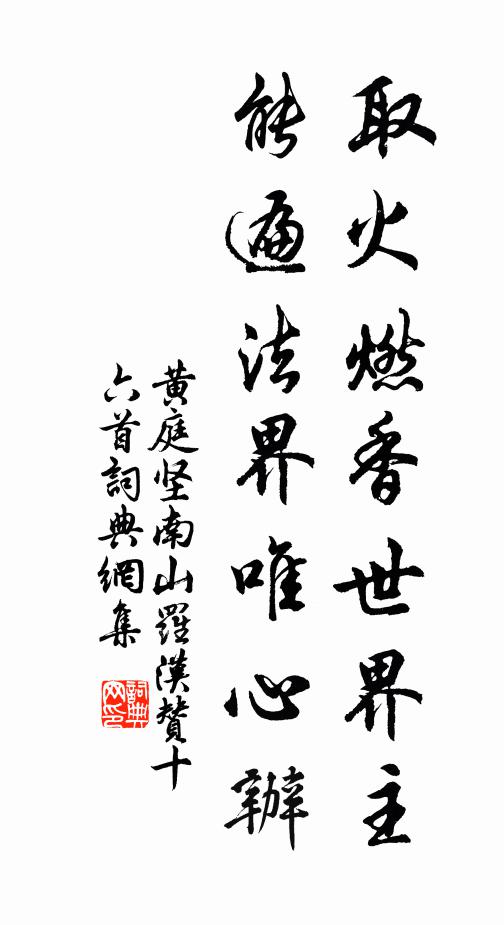 取火燃香世界主
能遍法界唯心辦
黄庭坚南山羅漢贊十
六首詞典網集
詞典網印